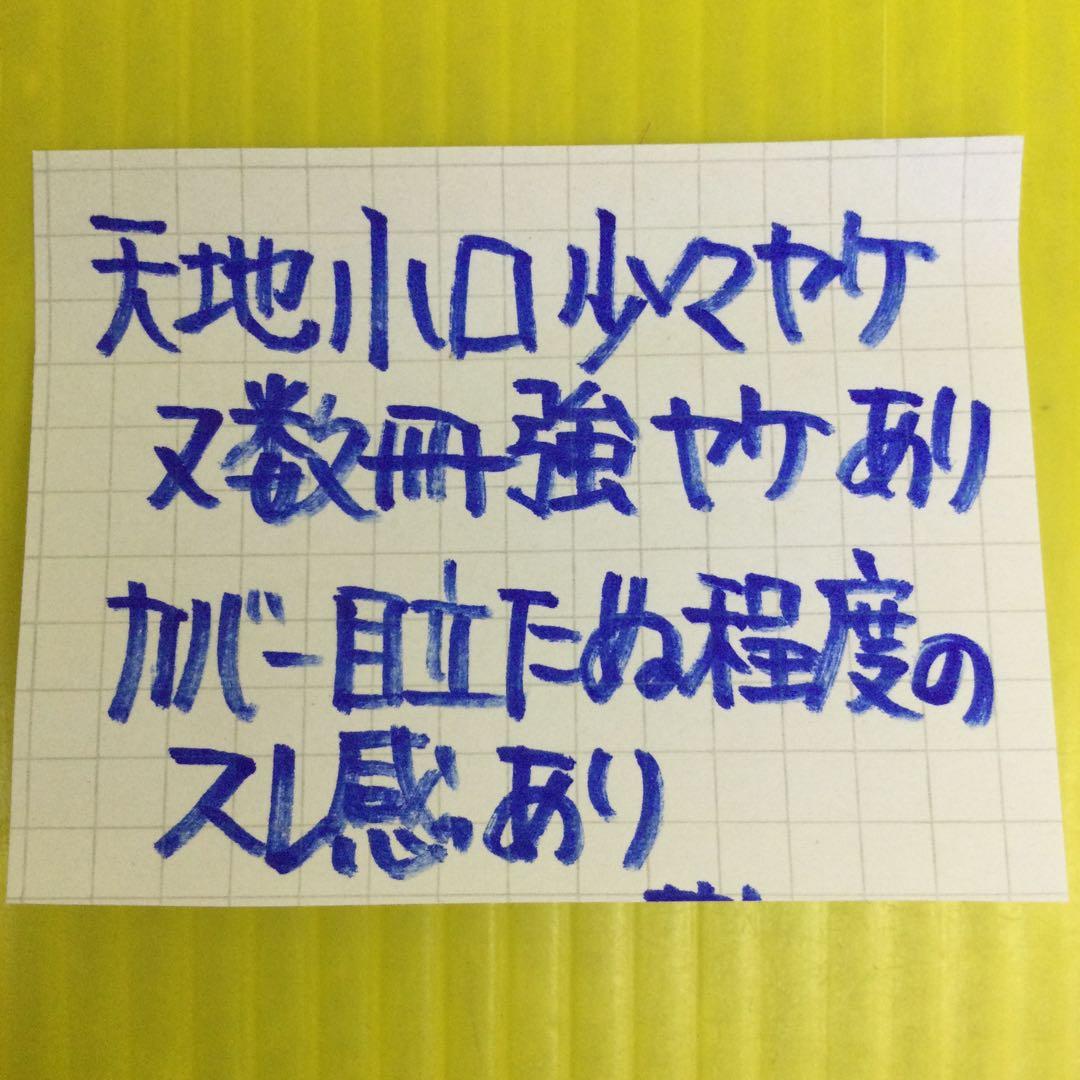 天地小口少々ヤケ
又数冊強ヤケあり
カバー目立たぬ程度の
スレ感あり